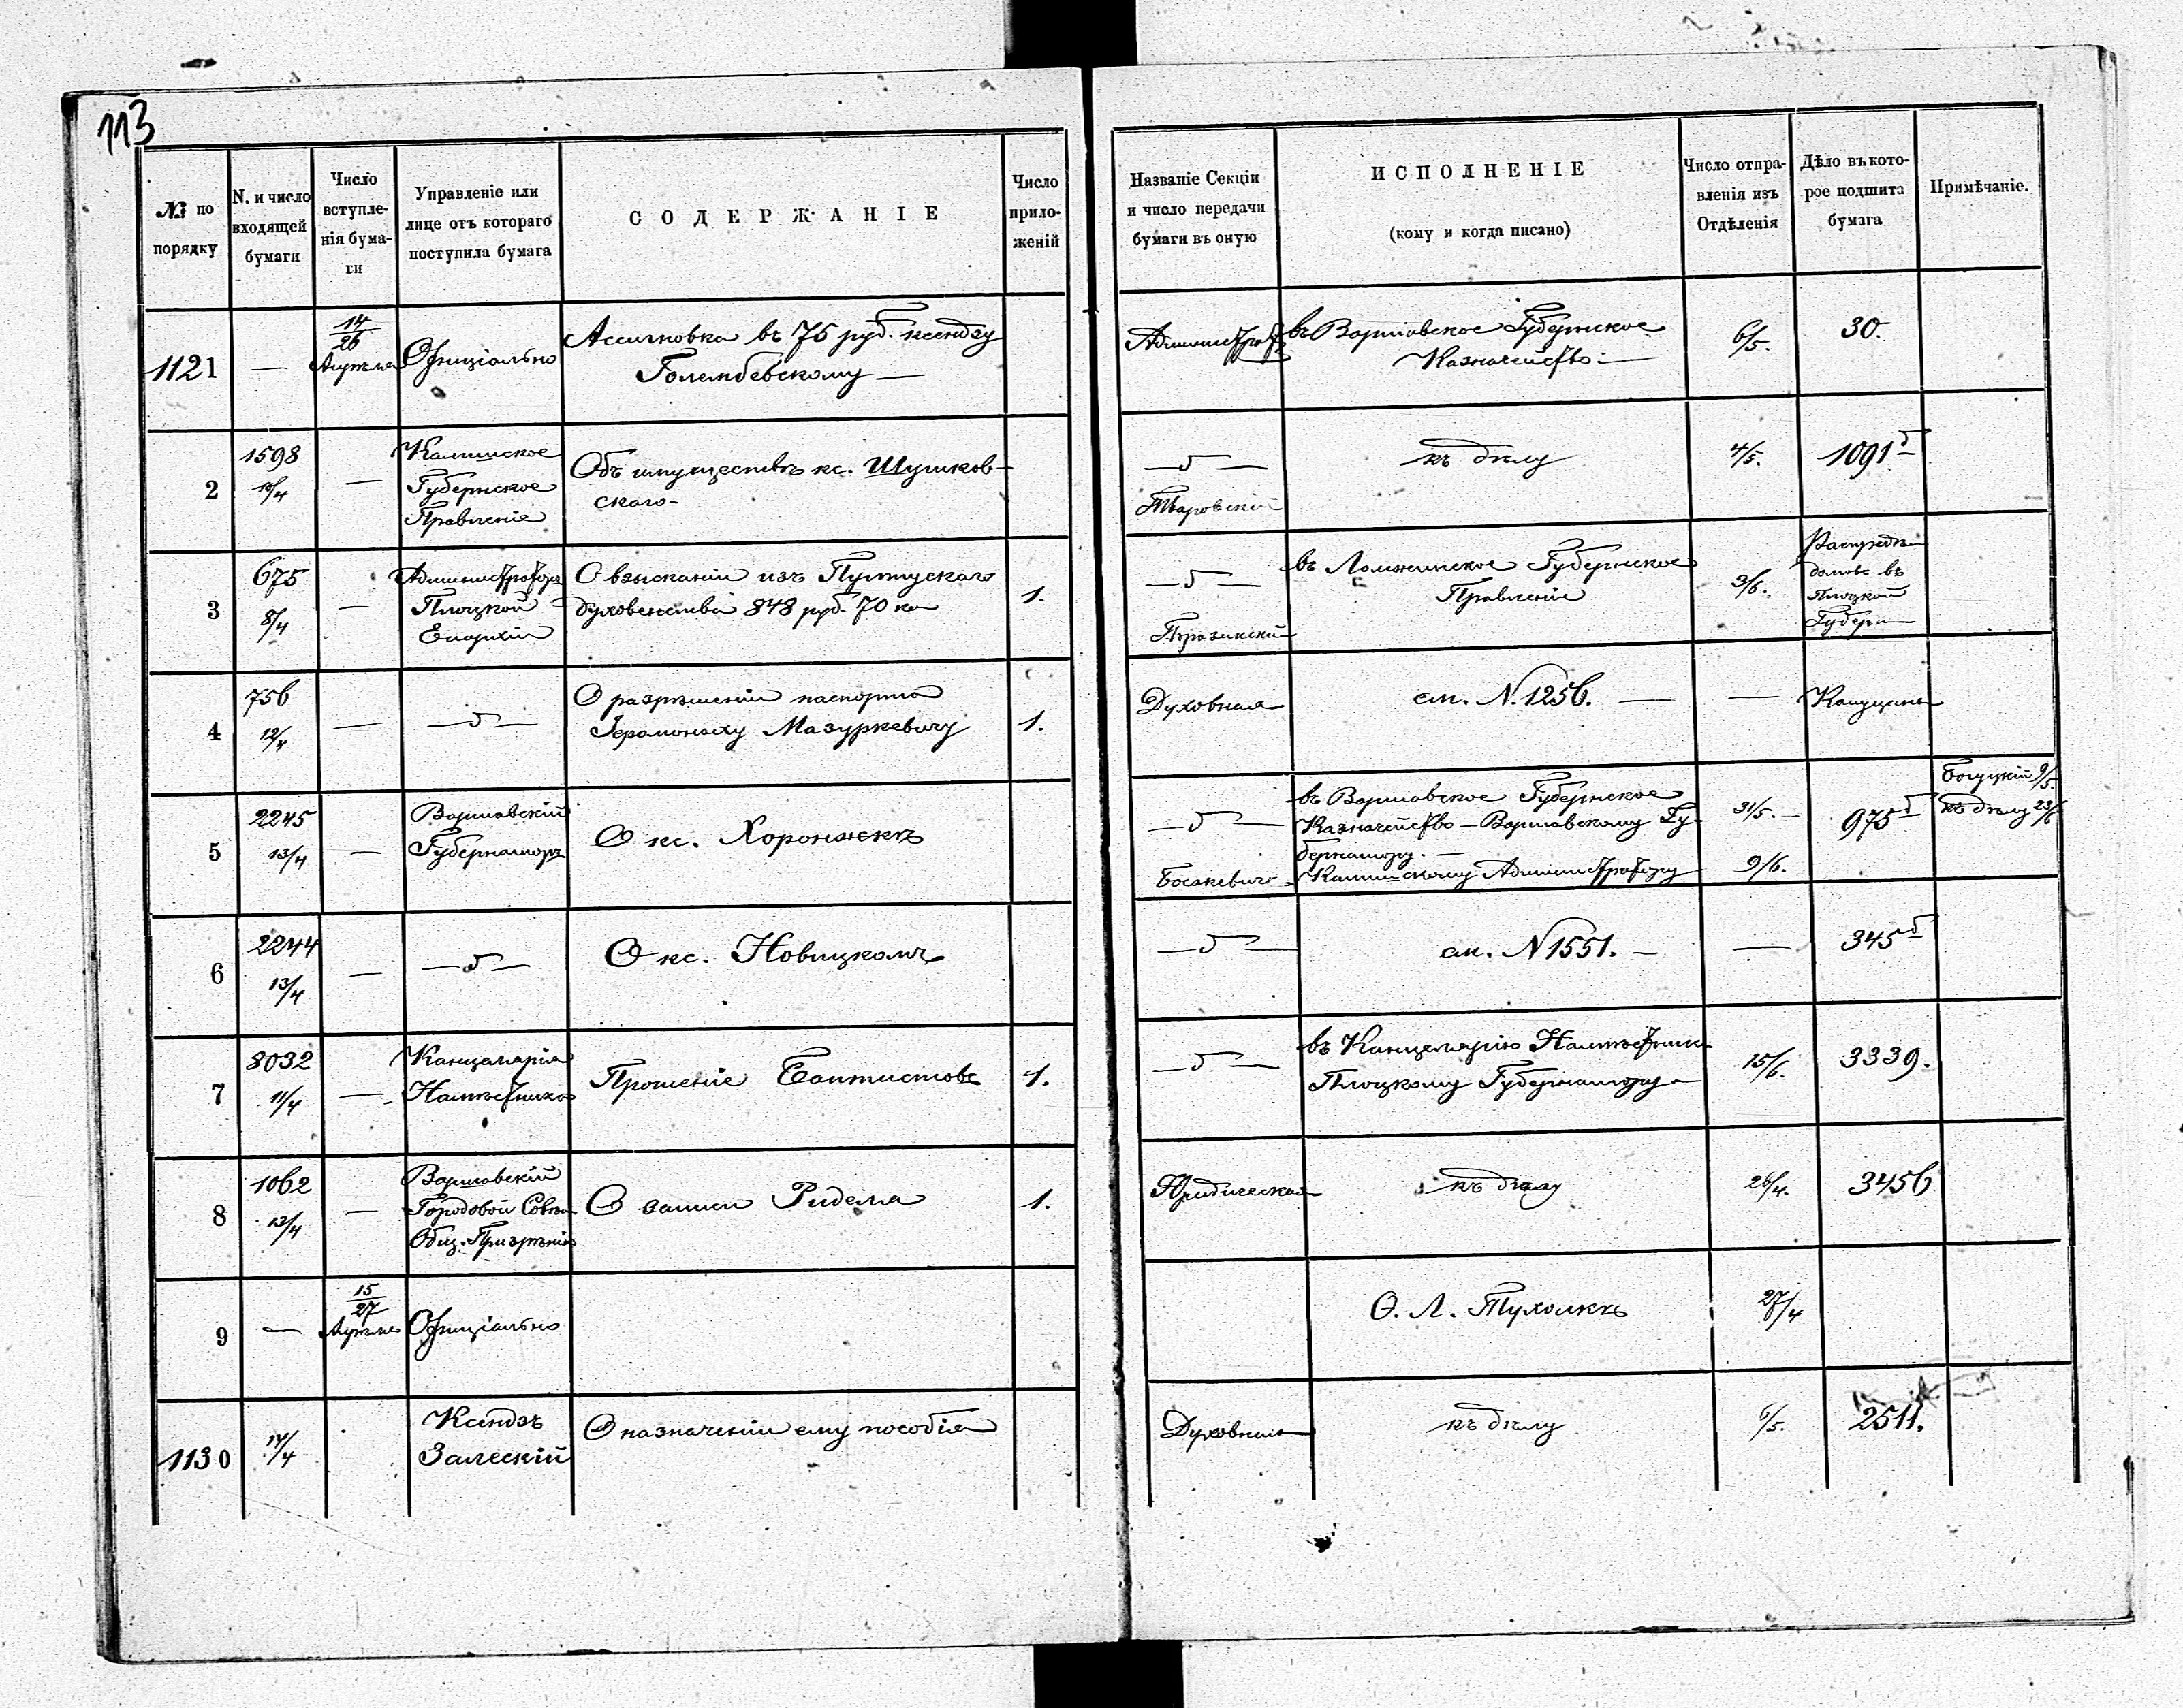 113
№ по порядку
N. и число входящей бумаги
Число вступле-нія бума-ги
Управленіе или лице отъ котораго поступила бумага
СОДЕРЖАНІЕ
Число прило-женій
Названіе Секціи и число передачи бумаги въ оную
ИСПОЛНЕНІЕ
(кому и когда писано)
Число отпра-вленія изъ Отдѣленія
Дѣло въ кото-рое подшита бумага
Примѣчаніе.
1121 — 14/26 Апрѣля Офиціально
Ассигновка въ 75 руб. ксендзу
Голембевскому —
въ Варшавское Губернское
Казначейство —
6/5. 30.
2 1598 10/4 —
Калишское
Губернское
Правленіе
Объ имуществѣ кс. Шумков-
скаго-
къ дѣлу
4/5. 1091 б
3 675 8/4 —
Администраторъ
Плоцкой
Епархіи
О взысканіи изъ Пултускаго
духовенства 848 руб. 70 ко
1.
въ Ломжинское Губернское
Правленіе
3/6.
домовъ въ
Плоцкой
Губерн
4 756 12/4 —
О разрѣшеніи паспорта
Іеромонаху Мазуркевичу
1.
Духовная
см. N. 1256. — —
5 2245 13/4 —
Варшавскій
Губернаторъ
О кс. Хоронжекъ
въ Варшавское Губернское
Казначейство — Варшавскому Гу-
бернатору. —
Администратору
31/5. —
9/6.
975 б
9/5.
къ дѣлу 23/6
6 2244 13/4 —
О кс. Новицкомъ
см. N 1551. — —
345 б
7 8032 11/4 —
Канцелярія
Намѣстника
Прошеніе Баптистовъ
1.
въ Канцелярію Намѣстника
Плоцкому Губернатору —
15/6. 3339.
8 1062 13/4 —
Варшавскій
Городовой Совѣт
Общ. Призрѣнія
О записи Риделя
1.
Юридическая
къ дѣлу
26/4. 3456
9 — 15/27 Апрѣля Офиціально
27/4
1130 14/4
Ксендзъ
Залескій
О назначеніи ему пособія
Духовная
къ дѣлу
6/5. 2511.